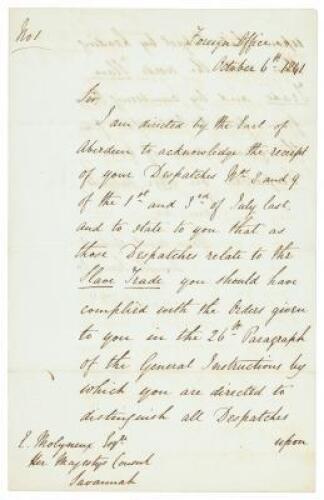 No 1
Foreign Office
October 6th 1841
Sir,
I am directed by the Earl of
Aberdeen to acknowledge the receipt
of your Despatches Nos. 8 and 9
of the 1st and 3rd of July last
and to state to you that as
those Despatches relate to the
Slave Trade you should have
complied with the Orders given
to you in the 26th Paragraph
of the General Instructions by
which you are directed to
distinguish all Despatches
upon
E. Molyneux Esqre
Her Majestys Consul
Savannah